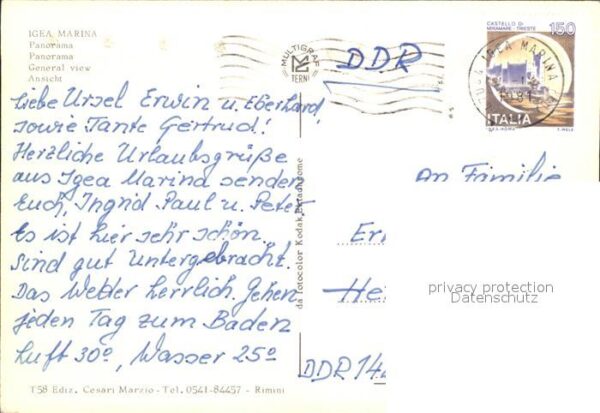 IGEA MARINA
Panorama
Panorama
General view
Ansicht
Liebe Ursel Erwin u. Eberhard
sowie Tante Gertrud!
Herzliche Urlaubsgrüße
aus Igea Marina senden
Euch, Ingrid Paul u. Peter
Es ist hier sehr schön.
Sind gut Untergebracht.
Das Wetter herrlich. Gehen
jeden Tag zum Baden
Luft 30°, Wasser 25°
T58 Ediz. Cesari Marzio - Tel. 0541-84457 - Rimini
MULTIGRAF
TERNI
da fotocolor Kodak Ektachrome
DDR
CASTELLO DI
MIRAMARE - TRIESTE
150
IGEA MARINA
ITALIA
An Familie
Er
He
DDR 14
privacy protection
Datenschutz